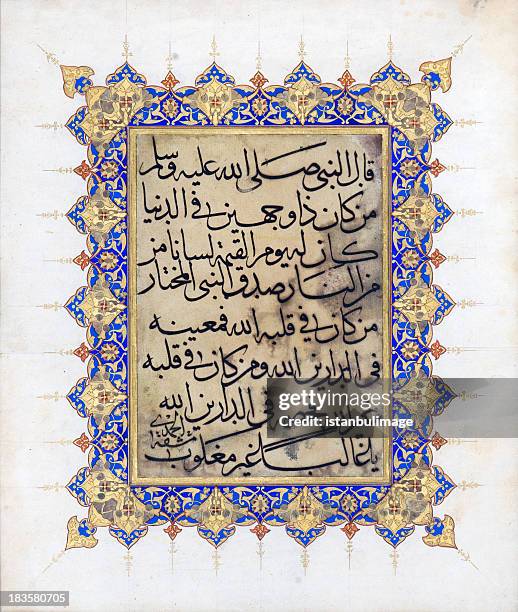 قال النبي صلى الله عليه وسلم
من كان ذا وجهين في الدنيا
كان له يوم القيمة لسانا من
من النار صدق النبي المختار
من كان في قلبه الله فمعينه
في الدارين الله ومن كان في قلبه
الله في الدارين الله
يا غالبا غير مغلوب
gettyimages
istanbulimage
183580705